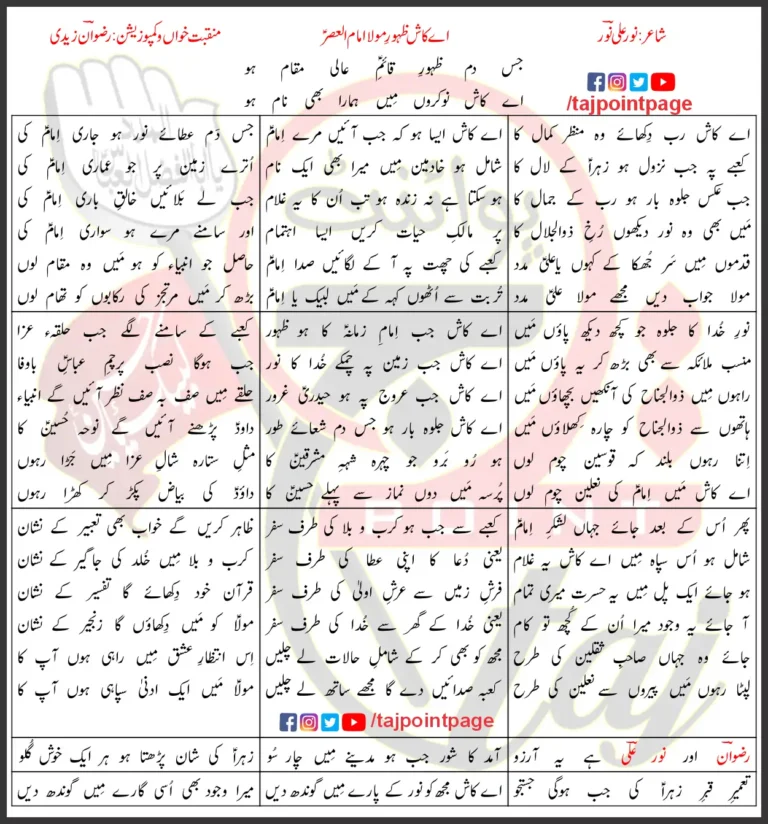 شاعر: نور علی نور
اے کاش ظہورِ مولا امام العصرؑ
منقبت خواں و کمپوزیشن: رضوان زیدی
جس دم ظہورِ قائمِؑ عالی مقام ہو
اے کاش نوکروں مِیں ہمارا بھی نام ہو
/tajpointpage
اے کاش رب دِکھائے وہ منظر کمال کا
کعبے پہ جب نزول ہو زہراؑ کے لال کا
جب عکس جلوہ بار ہو رب کے جمال کا
مَیں بھی وہ نور دیکھوں رُخِ ذوالجلال کا
قدموں مِیں سَر جُھکا کے کہوں یاعلیؑ مدد
مولا جواب دیں مجھے مولا علیؑ مدد
اے کاش ایسا ہو کہ جب آئیں مرے اِمامؑ
شامل ہو خادمین مِیں میرا بھی ایک نام
ہو سکتا ہے نہ زندہ ہو تب اُن کا یہ غلام
پر مالکِ حیات کریں ایسا اہتمام
کعبے کی چھت پہ آ کے لگائیں صدا اِمامؑ
تُربت سے اُٹھوں کہہ کے مَیں لبیک یا اِمامؑ
جس دَم عطائے نور ہو جاری اِمامؑ کی
اُترے زمین پر جو عماری اِمامؑ کی
جب لے بلائیں خالقِ باری اِمامؑ کی
اور سامنے مرے ہو سواری اِمامؑ کی
حاصل جو انبیاء کو ہو مَیں وہ مقام لوں
بڑھ کر مَیں مرتجز کی رکابوں کو تھام لوں
نورِ خُدا کا جلوہ جو کچھ دیکھ پاؤں مَیں
منسب ملائکہ سے بھی بڑھ کر یہ پاؤں مَیں
راہوں مِیں ذوالجناح کی آنکھیں بچھاؤں مَیں
ہاتھوں سے ذوالجناح کو چارہ کِھلاؤں مَیں
اِتنا رہوں بلند کہ قوسین چوم لوں
اے کاش مَیں اِمامؑ کی نعلین چوم لوں
اے کاش جب اِمامِ زمانہؑ کا ہو ظہور
اے کاش جب زمین پہ چمکے خُدا کا نور
اے کاش جب عروج پہ ہو حیدریؑ غرور
اے کاش جلوہ بار ہو جس دم شعائے طور
ہو رُو بَرو جو چہرہ شہہِ مشرقینؑ کا
پُرسہ مَیں دوں نماز سے پہلے حسینؑ کا
کعبے کے سامنے لگے جب حلقہء عزا
جب ہوگا نصب پرچمِ عباسِؑ باوفا
حلقے مِیں صف بہ صف نظر آئیں گے انبیاء
داؤدؑ پڑھنے آئیں گے نوحہ حُسینؑ کا
مثلِ ستارہ شالِ عزا مِیں جَڑا رہوں
داؤدؑ کی بیاض پکڑ کر کھڑا رہوں
پھر اُس کے بعد جائے جہاں لشکرِ اِمامؑ
شامل ہو اُس سپاہ مِیں اے کاش یہ غلام
ہو جائے ایک پل مِیں یہ حسرت میری تمام
آ جائے یہ وجود میرا اُن کے کُچھ تو کام
جائے وہ جہاں صاحبِ ثقلین کی طرح
لپٹا رہوں مَیں پیروں سے نعلین کی طرح
کعبے سے جب ہو کرب و بلا کی طرف سفر
یعنی دُعا کا اپنی عطا کی طرف سفر
فرشِ زمیں سے عرشِ اولیٰ کی طرف سفر
یعنی خُدا کے گھر سے خُدا کی طرف سفر
مجھ کو بھی کر کے شاملِ حالات لے چلیں
کعبہ صدائیں دے گا مجھے ساتھ لے چلیں
/tajpointpage
ظاہر کریں گے خواب بھی تعبیر کے نشان
کرب و بلا مِیں خُلد کی جاگیر کے نشان
قرآن خود دِکھائے گا تفسیر کے نشان
مولاؑ کو مَیں دِکھاؤں گا زنجیر کے نشان
اِس انتظارِ عشق مِیں راہی ہوں آپ کا
مولاؑ مَیں ایک ادنیٰ سپاہی ہوں آپ کا
رضوانؔ اور نور علیؔ ہے یہ آرزو
آمد کا شور جب ہو مدینے مِیں چار سُو
زہراؑ کی شان پڑھتا ہو ہر ایک خوش گُلو
تعمیرِ قبرِ زہراؑ کی جب ہوگی جستجو
اے کاش مجھ کو نور کے پارے مِیں گوندھ دیں
میرا وجود بھی اُسی گارے مِیں گوندھ دیں